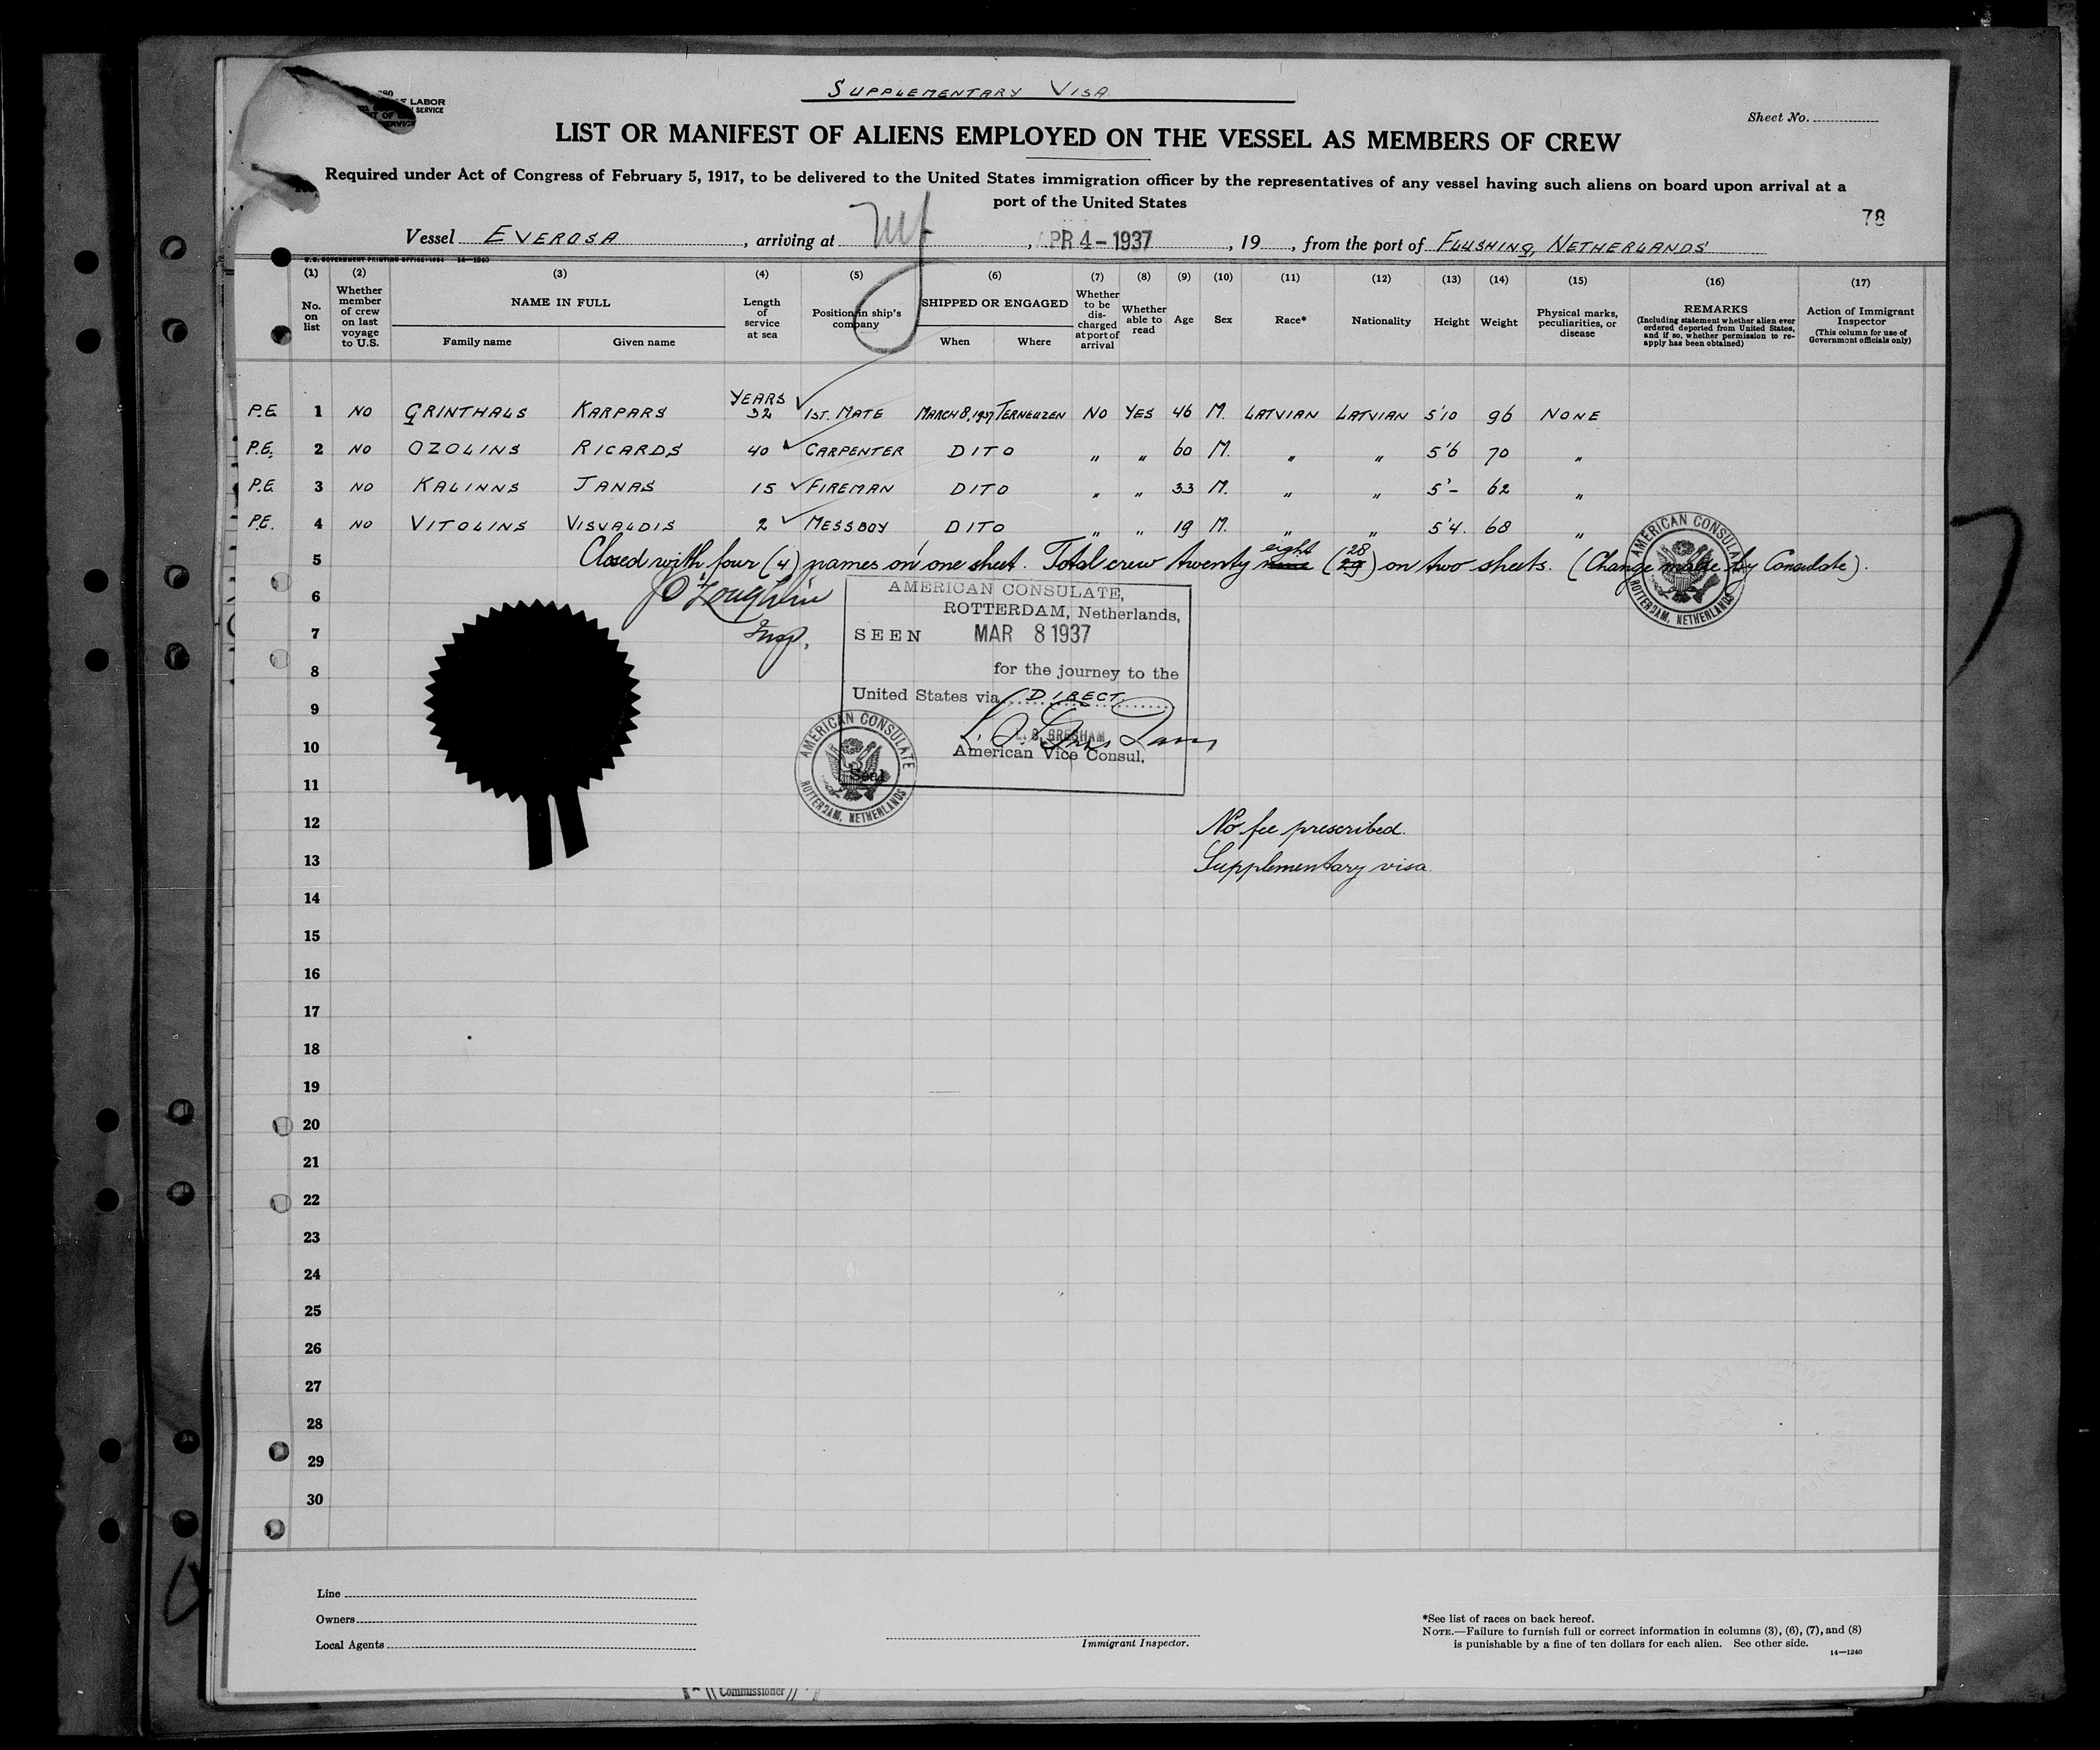 SUPPLEMENTARY VISA
LABOR
SERVICE
Sheet No.
LIST OR MANIFEST OF ALIENS EMPLOYED ON THE VESSEL AS MEMBERS OF CREW
Required under Act of Congress of February 5, 1917, to be delivered to the United States immigration officer by the representatives of any vessel having such aliens on board upon arrival at a
port of the United States
78
Vessel EVEROSA, arriving at , APR 4-1937, 19 , from the port of FLUSHING, NETHERLANDS
U.S. GOVERNMENT PRINTING OFFICE: 1934 14-1240
(1) (2) (3) (4) (5) (6) (7) (8) (9) (10) (11) (12) (13) (14) (15) (16) (17)
No. on list
Whether member of crew on last voyage to U.S.
NAME IN FULL
Family name Given name
Length of service at sea
Position in ship's company
SHIPPED OR ENGAGED
When Where
Whether to be discharged at port of arrival
Whether able to read
Age
Sex
Race*
Nationality
Height
Weight
Physical marks, peculiarities, or disease
REMARKS
(Including statement whether alien ever ordered deported from United States, and if so, whether permission to re-apply has been obtained)
Action of Immigrant Inspector
(This column for use of Government officials only)
YEARS
P.E. 1 NO GRINTHALS KARPARS 32 1ST. MATE MARCH 8, 1937 TERNEUZEN NO YES 46 M. LATVIAN LATVIAN 5'10 96 NONE
P.E. 2 NO OZOLINS RICARDS 40 CARPENTER DITO " " 60 M. " " 5'6 70 "
P.E. 3 NO KALINNS JANAS 15 FIREMAN DITO " " 33 M. " " 5'- 62 "
P.E. 4 NO VITOLINS VISVALDIS 2 MESSBOY DITO " " 19 M. " " 5'4. 68 "
5 Closed with four (4) names on one sheet. Total crew twenty nine eight (29 28) on two sheets. (Change made by Consulate).
J O'Loughlin
Insp.
AMERICAN CONSULATE,
ROTTERDAM, Netherlands,
SEEN MAR 8 1937
for the journey to the
United States via DIRECT
L. S. GRESHAM
American Vice Consul.
Seal
AMERICAN CONSULATE
ROTTERDAM, NETHERLANDS
AMERICAN CONSULATE
ROTTERDAM, NETHERLANDS
No fee prescribed.
Supplementary visa.
6
7
8
9
10
11
12
13
14
15
16
17
18
19
20
21
22
23
24
25
26
27
28
29
30
Line
Owners
Local Agents
Immigrant Inspector.
*See list of races on back hereof.
NOTE.—Failure to furnish full or correct information in columns (3), (6), (7), and (8)
is punishable by a fine of ten dollars for each alien. See other side.
14-1240
Commissioner